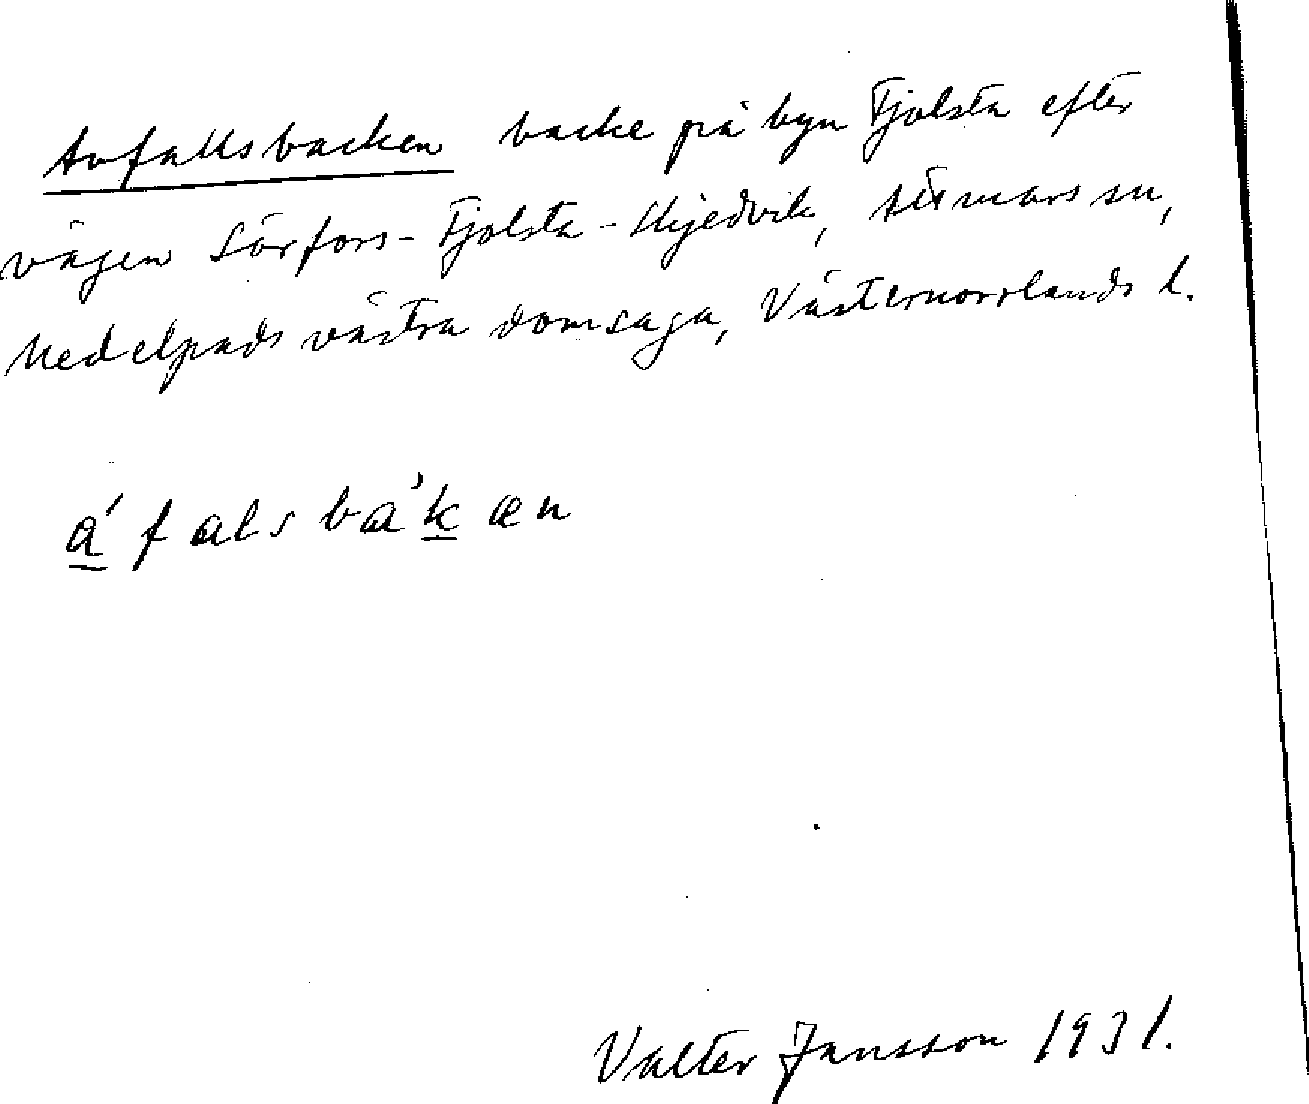 Avfallsbacken backe på byn Fjolsta efter
vägen Sörfors-Fjolsta-Skjedvik, Attmars sn,
Medelpads västra domsaga, Västernorrlands l.
á̱falsbà'ḵæn
Valter Jansson 1931.